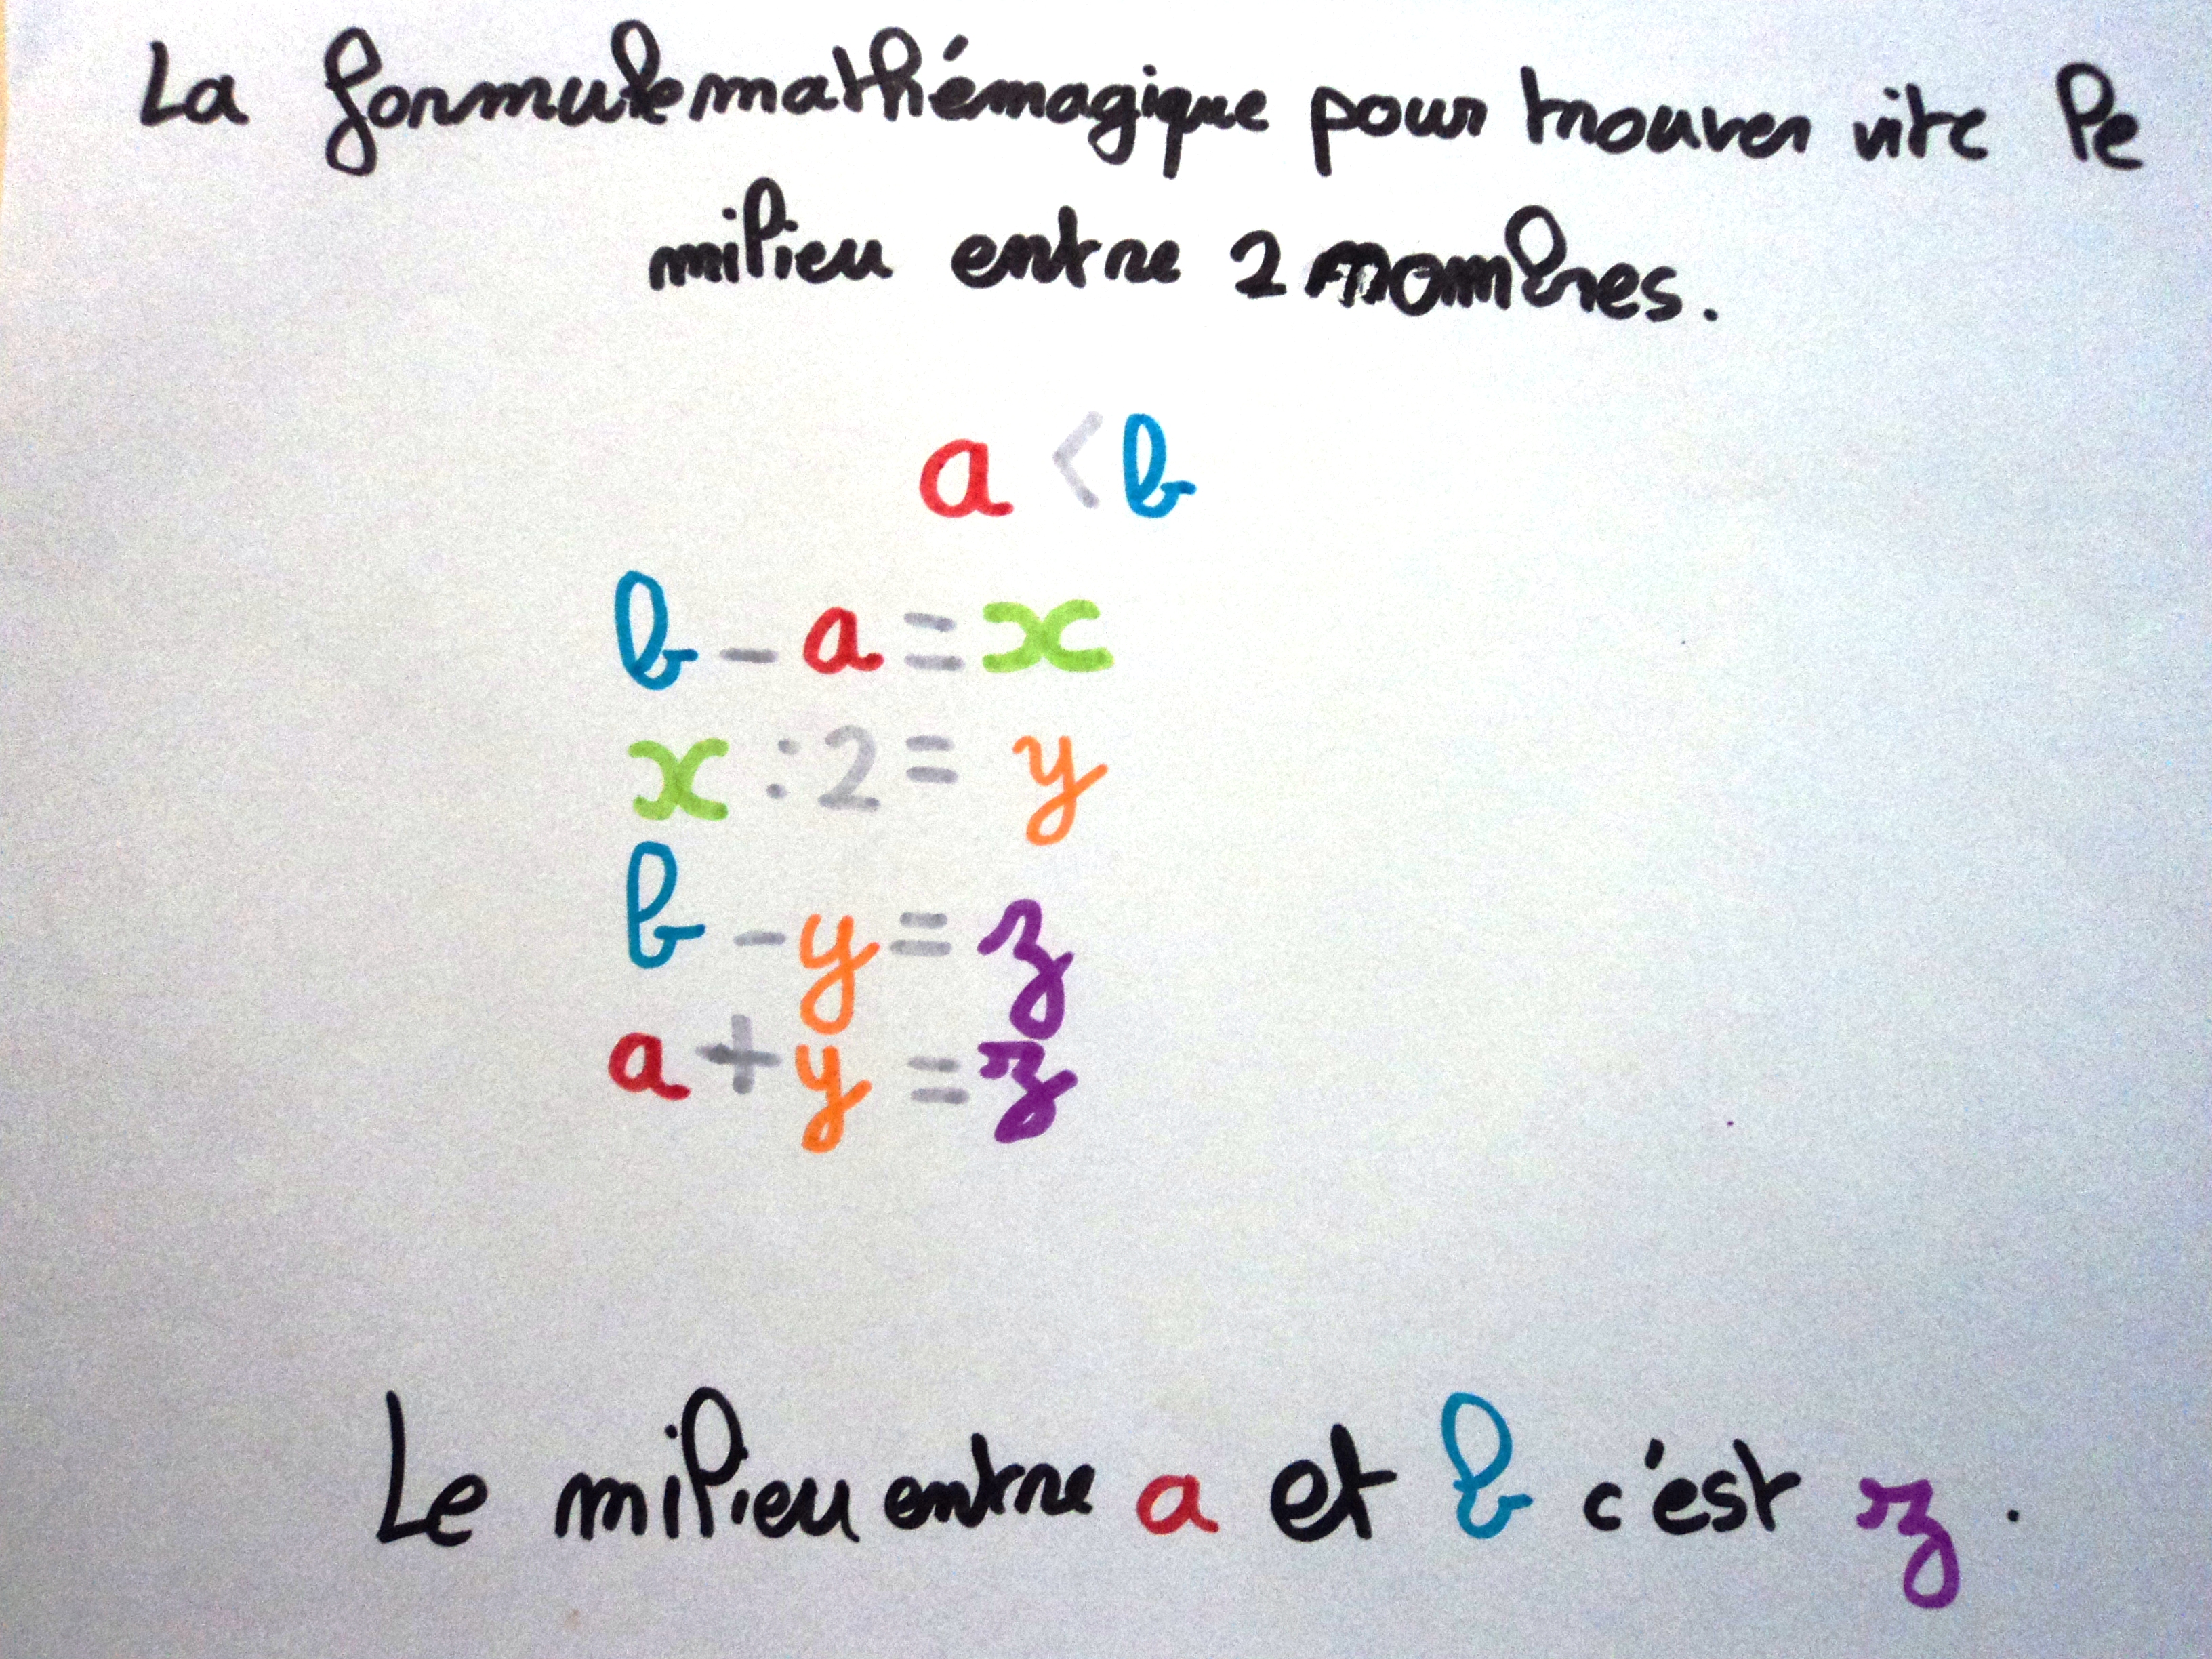 La formule mathémagique pour trouver vite le
milieu entre 2 nombres.
a < b
b - a = x
x : 2 = y
b - y = z
a + y = z
Le milieu entre a et b c'est z.